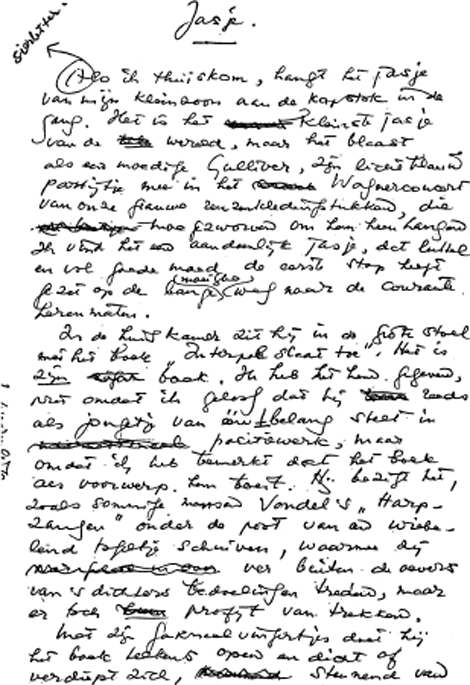 sierletter.
Jasje.
Als ik thuiskom, hangt het jasje
van mijn kleinzoon aan de kapstok in de
gang. Het is het kleinste jasje
van de wereld, maar het blaast
als een moedige Gulliver, zijn lichtblauw
partijtje mee in het Wagnerconcert
van onze grauwe reuzenkledingstukken, die
moegezworven om hem heen hangen
Ik vind het een aandoenlijk jasje, dat luttel
en vol goede moed de eerste stap heeft
gezet op de lange (moeilijke) weg naar de courante
herenmaten.
In de huiskamer zit hij in de grote stoel
met het boek „Interpol slaat toe". Het is
zijn boek. Ik heb het hem gegeven,
niet omdat ik geloof dat hij reeds
als jongetje van één belang stelt in
politiewerk, maar
omdat ik heb bemerkt dat het boek
als voorwerp hem boeit. Hij bezigt het,
zoals sommige mensen Vondel's „Harp-
zangen" onder de poot van een wiebe-
lend tafeltje schuiven, waarmee zij
ver buiten de oevers
van 's dichters bedoelingen treden, maar
er toch profijt van trekken.
Met zijn garnaalvingertjes doet hij
het boek telkens open en dicht of
verdiept zich, steunend van